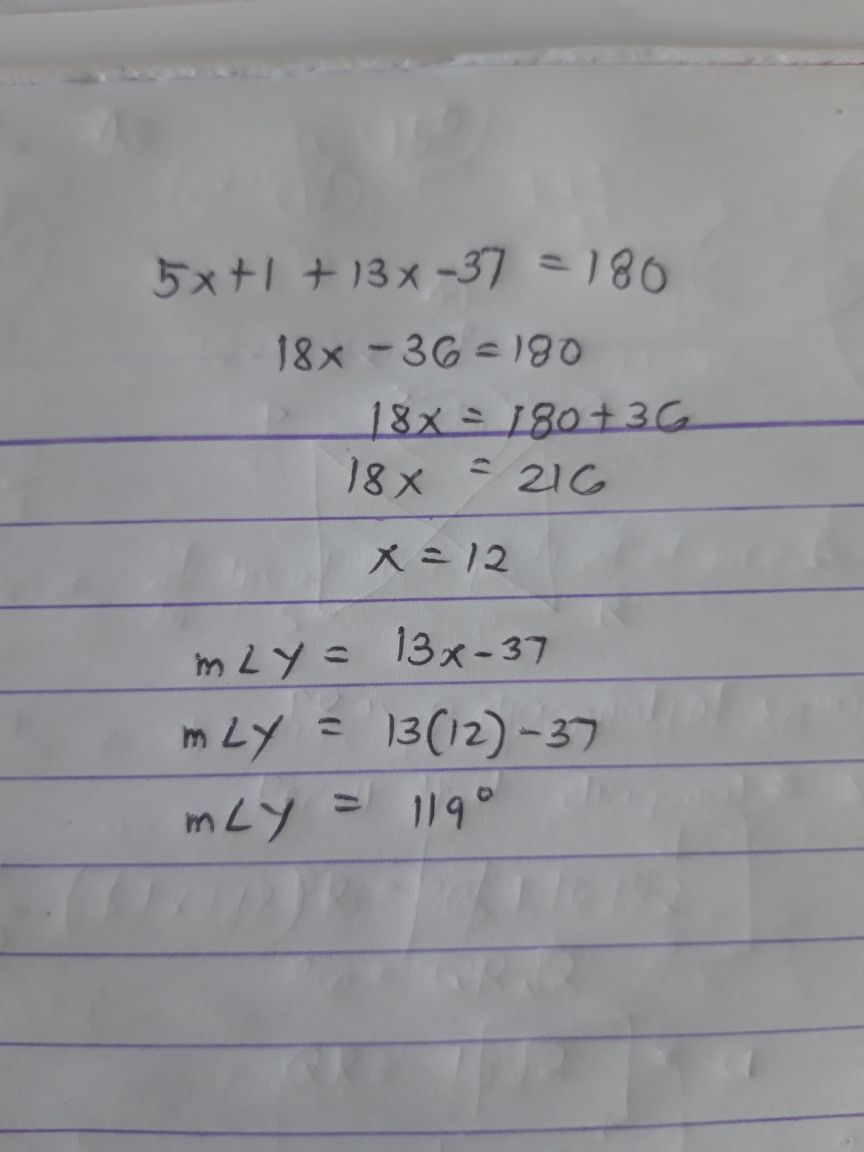 5x+1 + 13x-37 = 180
18x - 36 = 180
18x = 180+36
18x = 216
x = 12
m∠Y = 13x-37
m∠Y = 13(12)-37
m∠Y = 119°